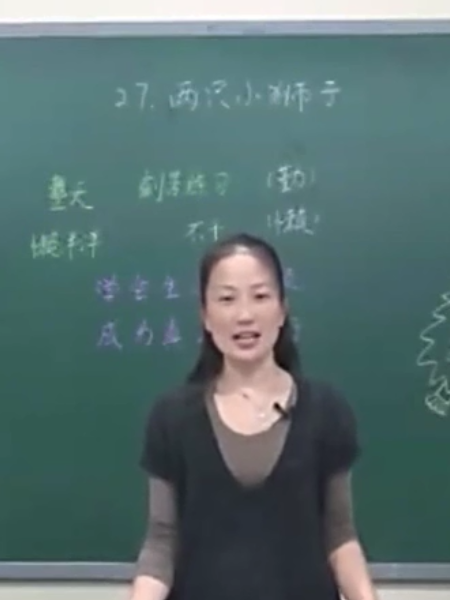 27.两只小狮子
整天 刻苦练习 (勤)
懒洋洋 不干 (懒)
学会生
成为真